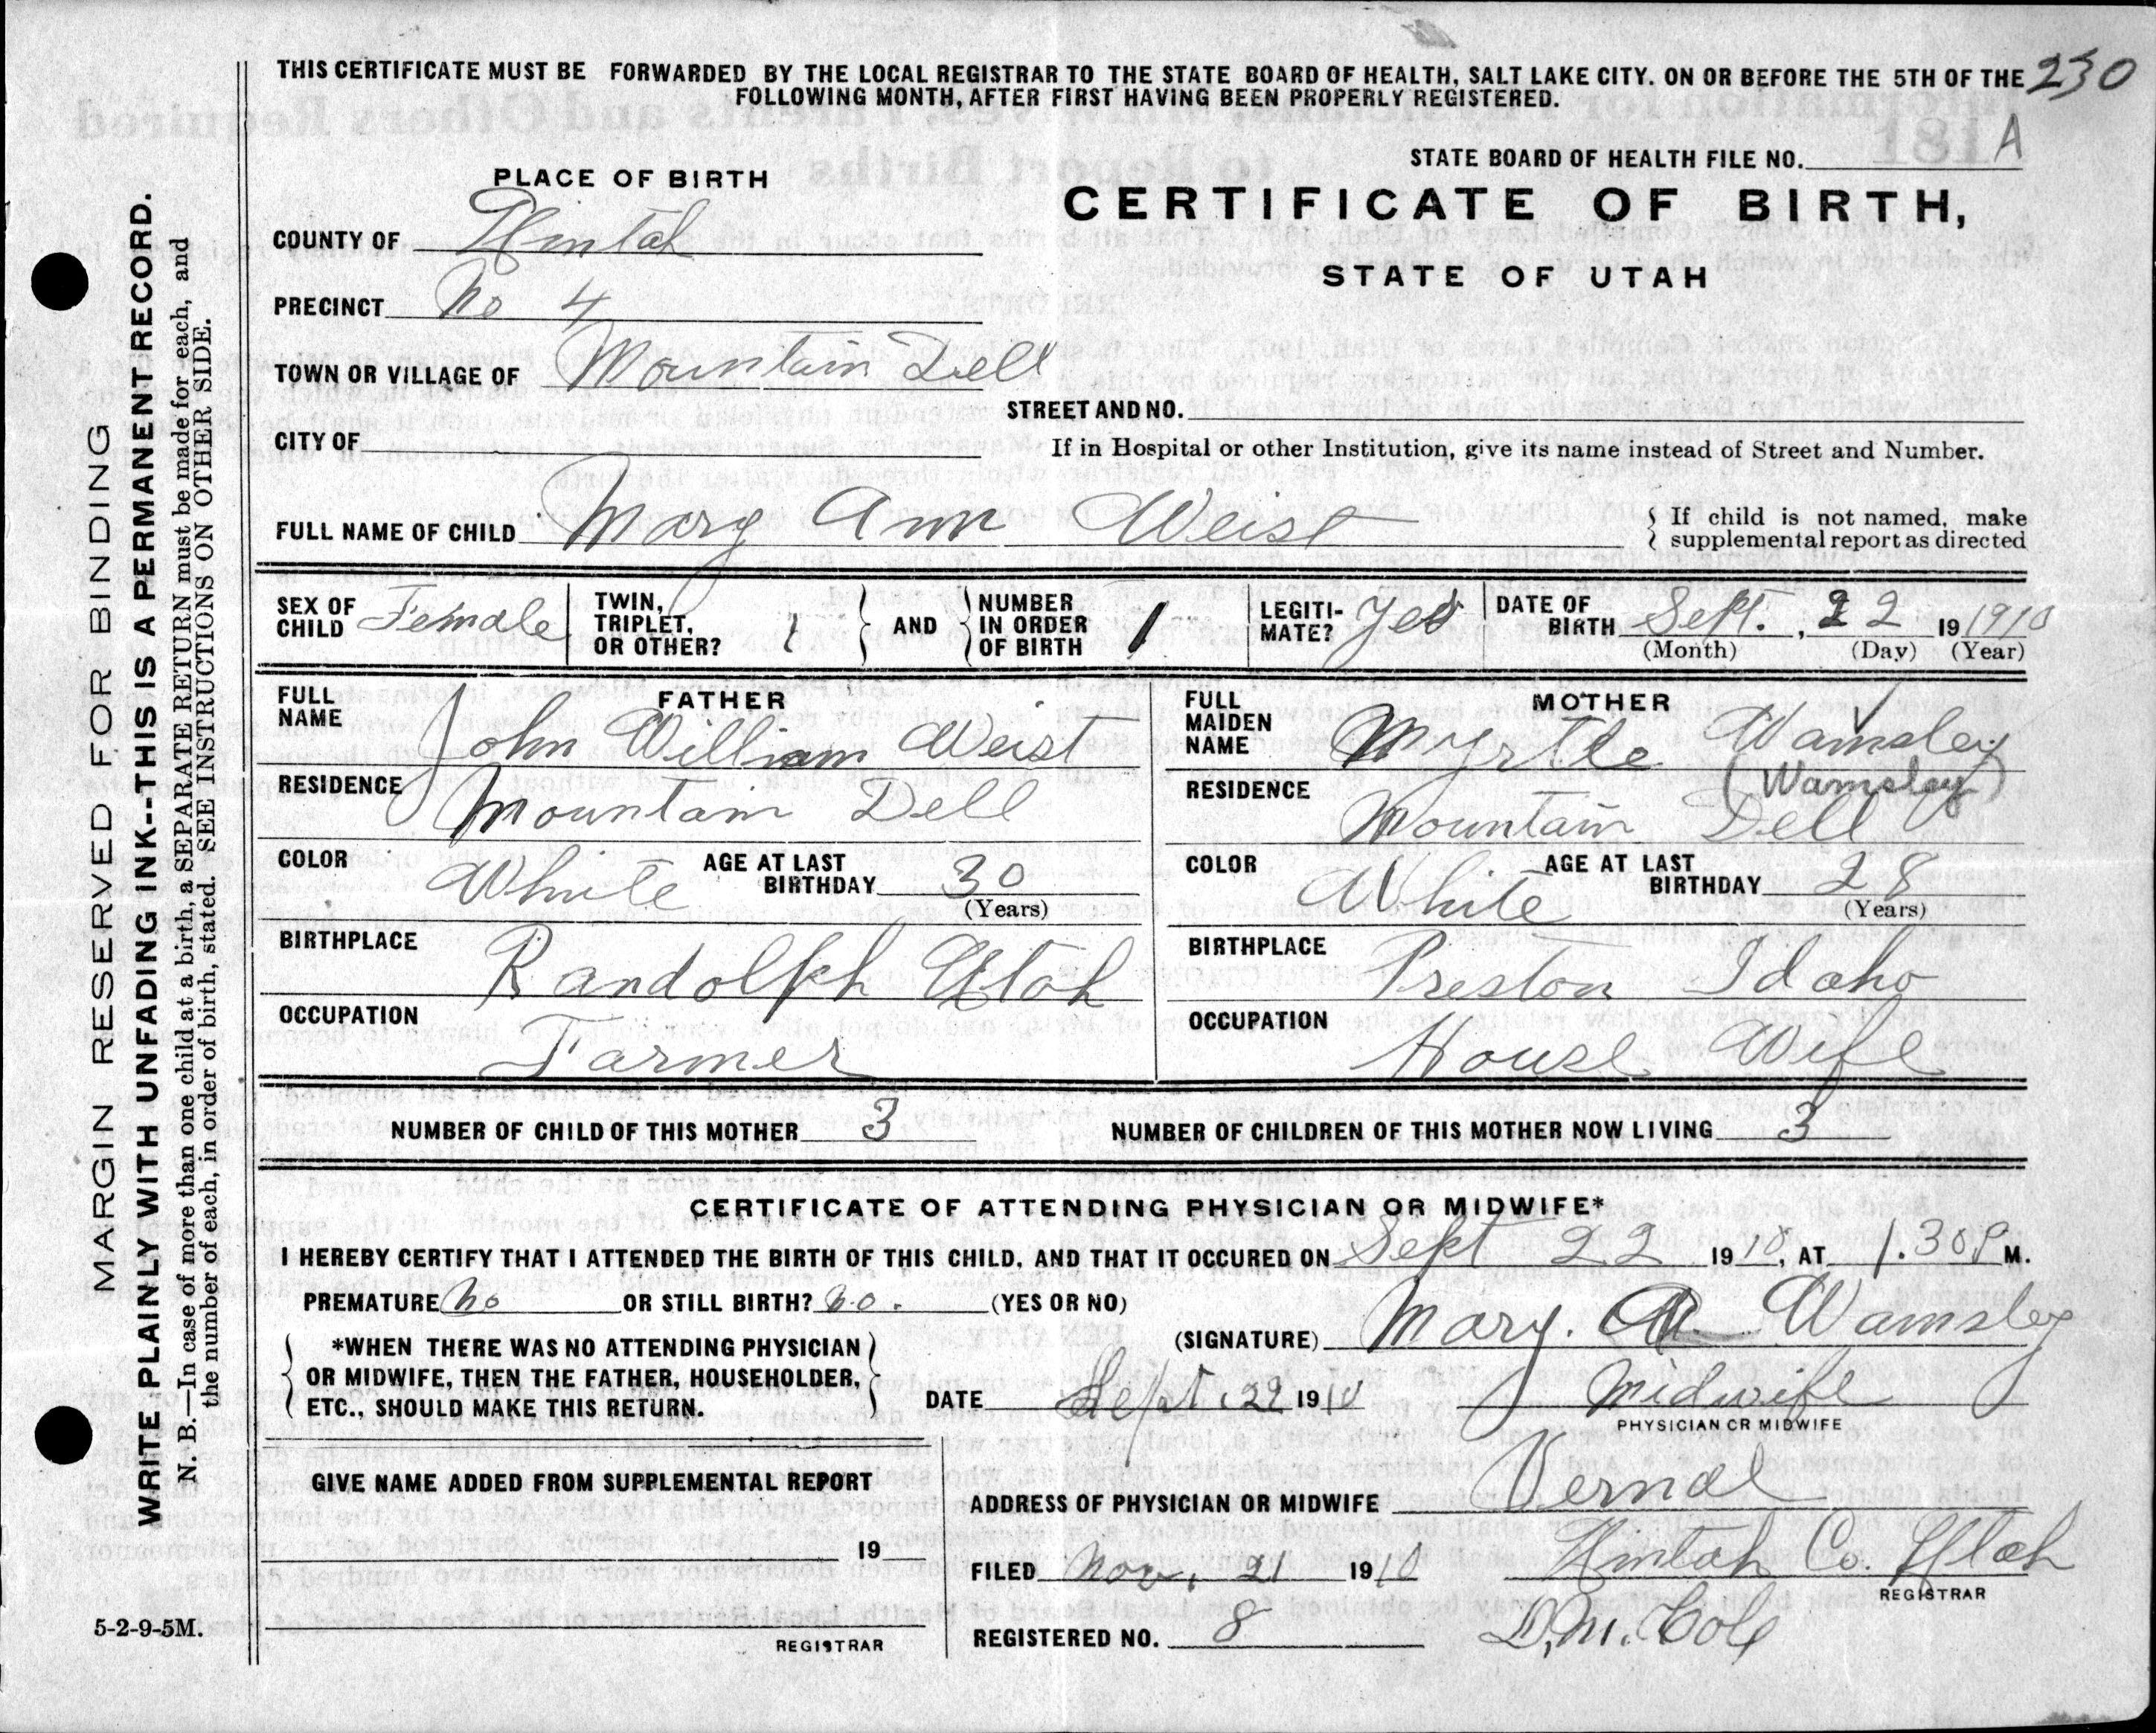 THIS CERTIFICATE MUST BE FORWARDED BY THE LOCAL REGISTRAR TO THE STATE BOARD OF HEALTH, SALT LAKE CITY. ON OR BEFORE THE 5TH OF THE 230
FOLLOWING MONTH, AFTER FIRST HAVING BEEN PROPERLY REGISTERED.
STATE BOARD OF HEALTH FILE NO. A
PLACE OF BIRTH
CERTIFICATE OF BIRTH,
STATE OF UTAH
COUNTY OF Uintah
PRECINCT No 4
TOWN OR VILLAGE OF Mountain Dell
STREET AND NO.
CITY OF
If in Hospital or other Institution, give its name instead of Street and Number.
FULL NAME OF CHILD Mary Ann Weist
If child is not named, make
supplemental report as directed
SEX OF CHILD Female
TWIN, TRIPLET, OR OTHER? 1
AND
NUMBER IN ORDER OF BIRTH 1
LEGITI-MATE? Yes
DATE OF BIRTH Sept. , 22 19 1910
(Month) (Day) (Year)
FATHER
FULL NAME John William Weist
RESIDENCE Mountain Dell
COLOR White AGE AT LAST BIRTHDAY 30
(Years)
BIRTHPLACE Randolph Utah
OCCUPATION Farmer
MOTHER
FULL MAIDEN NAME Myrtle Wamsley
(Wamsley)
RESIDENCE Mountain Dell
COLOR White AGE AT LAST BIRTHDAY 28
(Years)
BIRTHPLACE Preston Idaho
OCCUPATION House Wife
NUMBER OF CHILD OF THIS MOTHER 3 NUMBER OF CHILDREN OF THIS MOTHER NOW LIVING 3
CERTIFICATE OF ATTENDING PHYSICIAN OR MIDWIFE*
I HEREBY CERTIFY THAT I ATTENDED THE BIRTH OF THIS CHILD, AND THAT IT OCCURED ON Sept 22 1910, AT 1.30 P M.
PREMATURE No OR STILL BIRTH? No. (YES OR NO)
(SIGNATURE) Mary. A. Wamsley
*WHEN THERE WAS NO ATTENDING PHYSICIAN
OR MIDWIFE, THEN THE FATHER, HOUSEHOLDER,
ETC., SHOULD MAKE THIS RETURN.
DATE Sept. 22 1910 Midwife
PHYSICIAN OR MIDWIFE
GIVE NAME ADDED FROM SUPPLEMENTAL REPORT
19
REGISTRAR
ADDRESS OF PHYSICIAN OR MIDWIFE Vernal
FILED Nov. 21 1910 Uintah Co. Utah
REGISTRAR
REGISTERED NO. 8 D. M. Cole
5-2-9-5M.
MARGIN RESERVED FOR BINDING
WRITE PLAINLY WITH UNFADING INK--THIS IS A PERMANENT RECORD.
N. B.—In case of more than one child at a birth, a SEPARATE RETURN must be made for each, and
the number of each, in order of birth, stated. SEE INSTRUCTIONS ON OTHER SIDE.